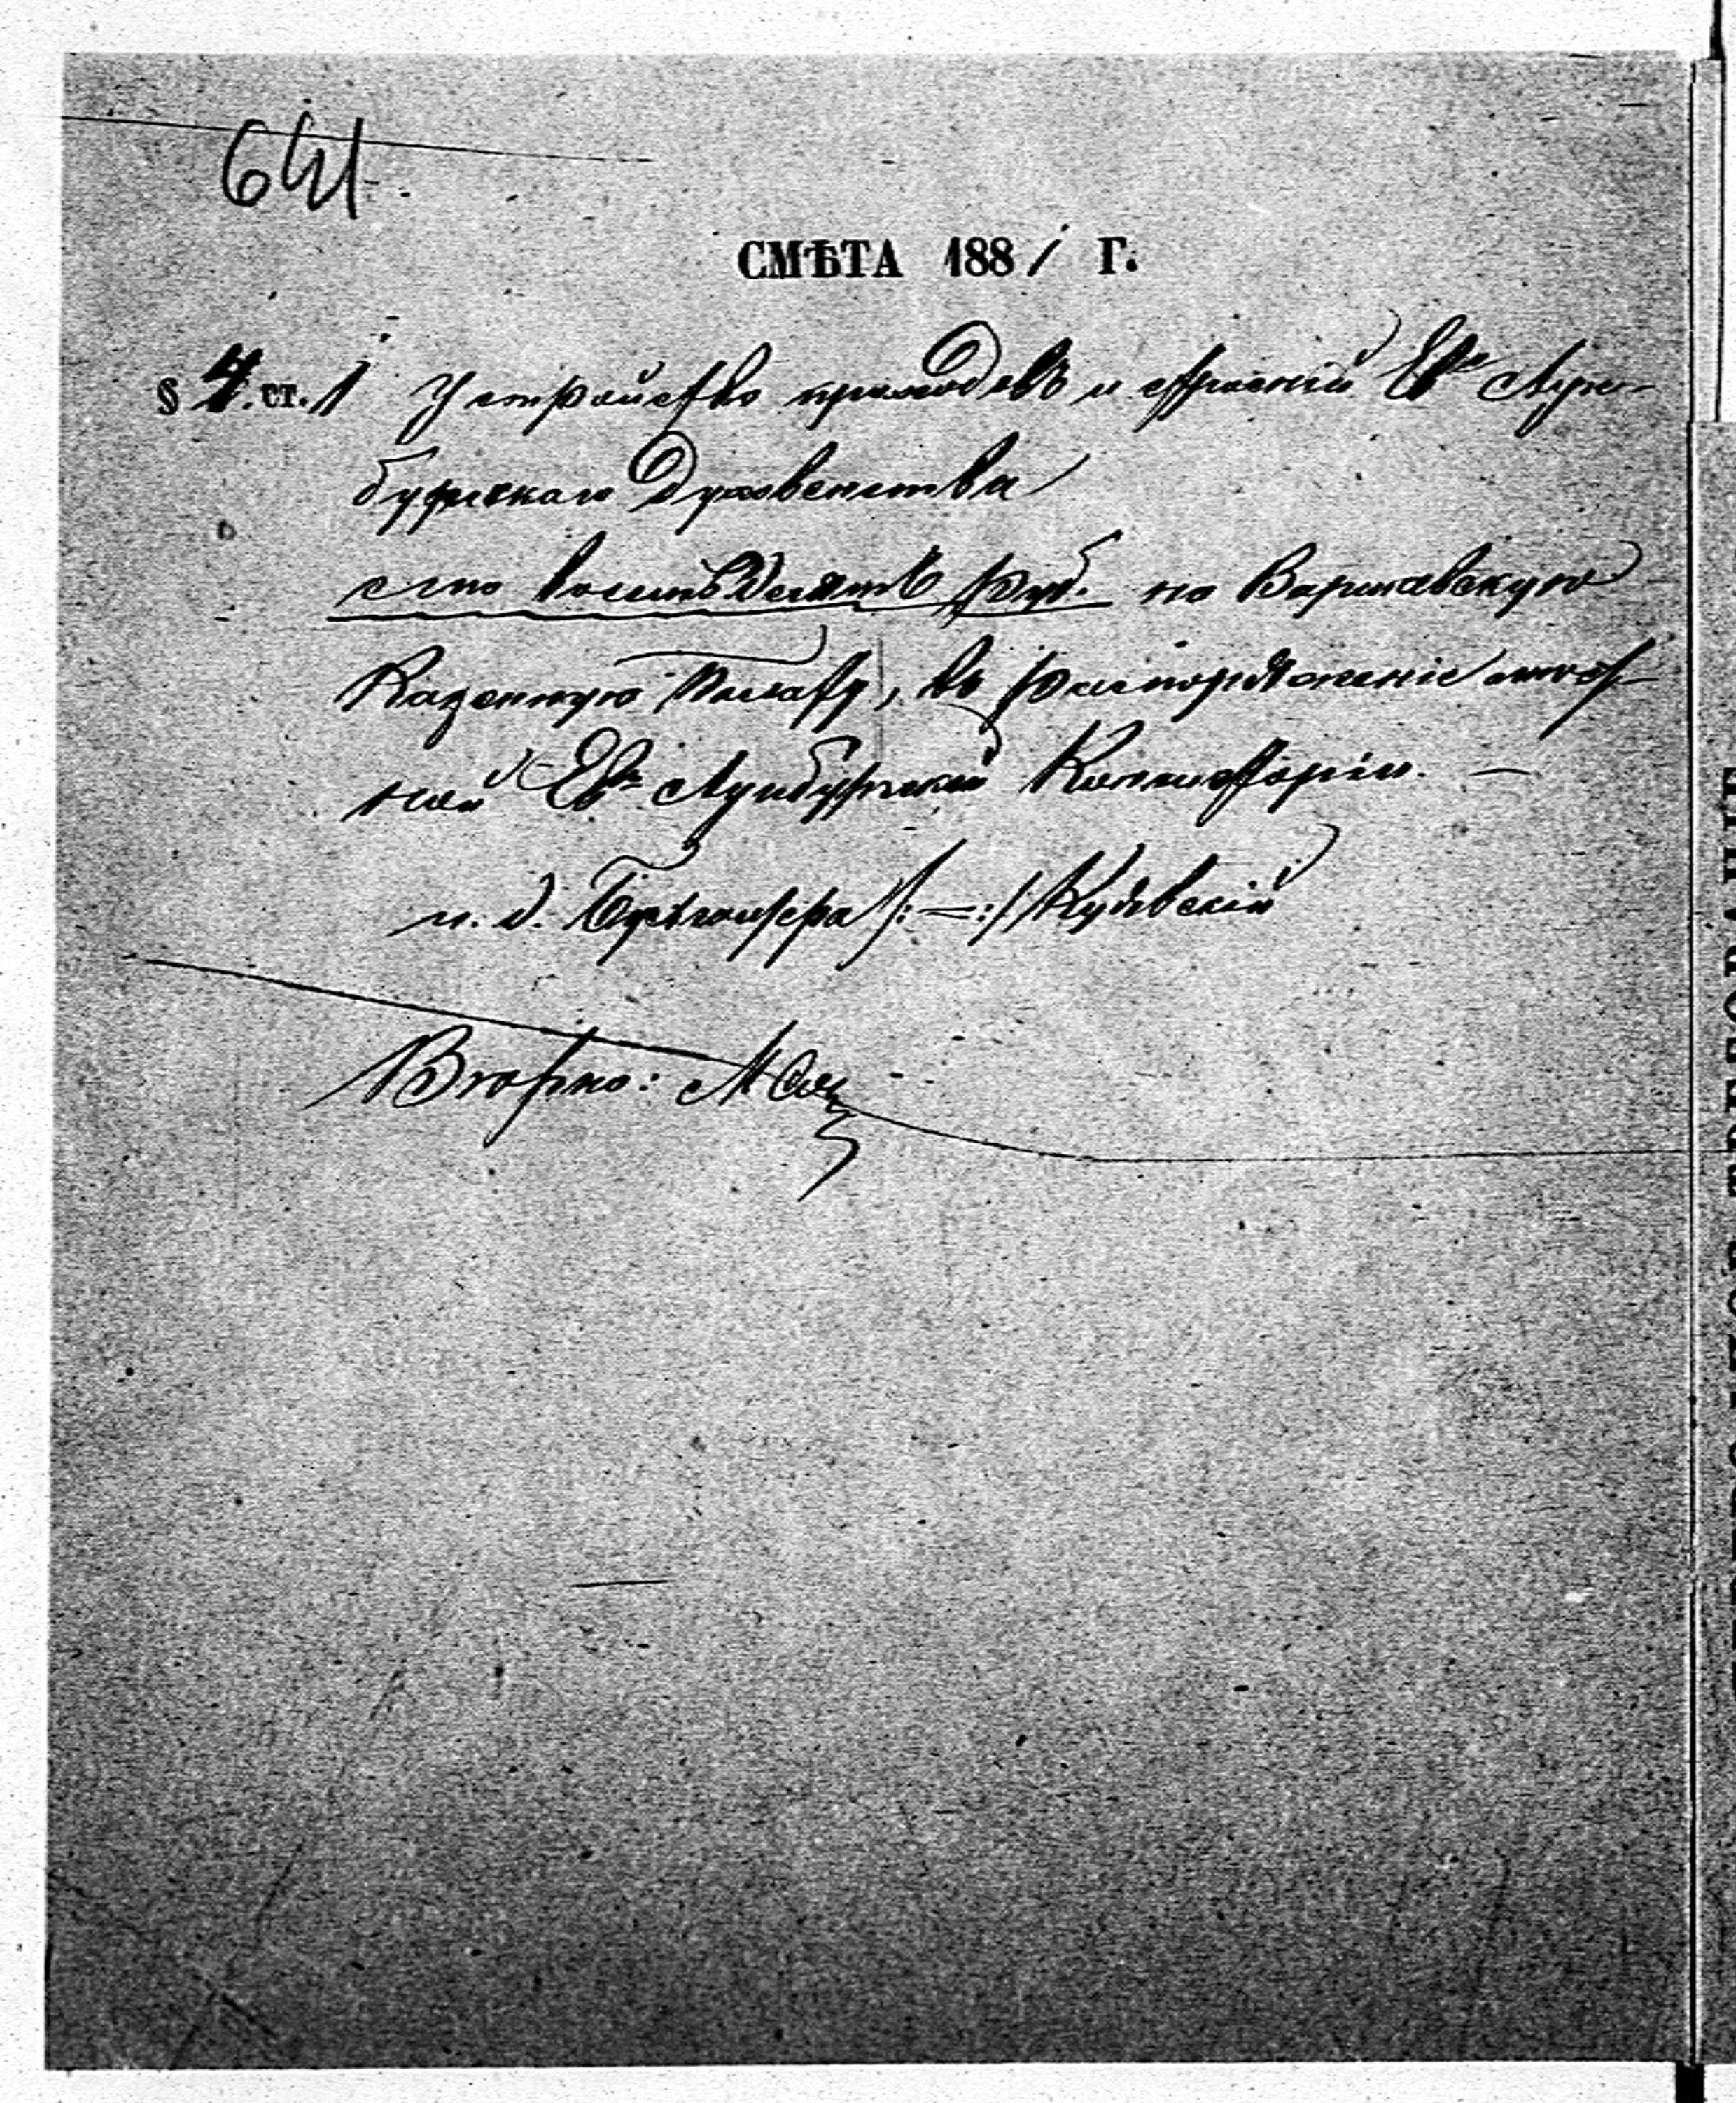 641
СМѢТА 1881 Г.
§ 4. ст. 1 Устройство приходовъ и строеній Ев. Аугс-
бургскаго Духовенства
сто восемьдесятъ руб. на Варшавскую
Казенную Палату, въ распоряженіе мѣст-
ной Ев. Аугсбургской Консисторіи. —
и. д. Бухгалтера /:—:/ Кудевскій
Вѣрно: